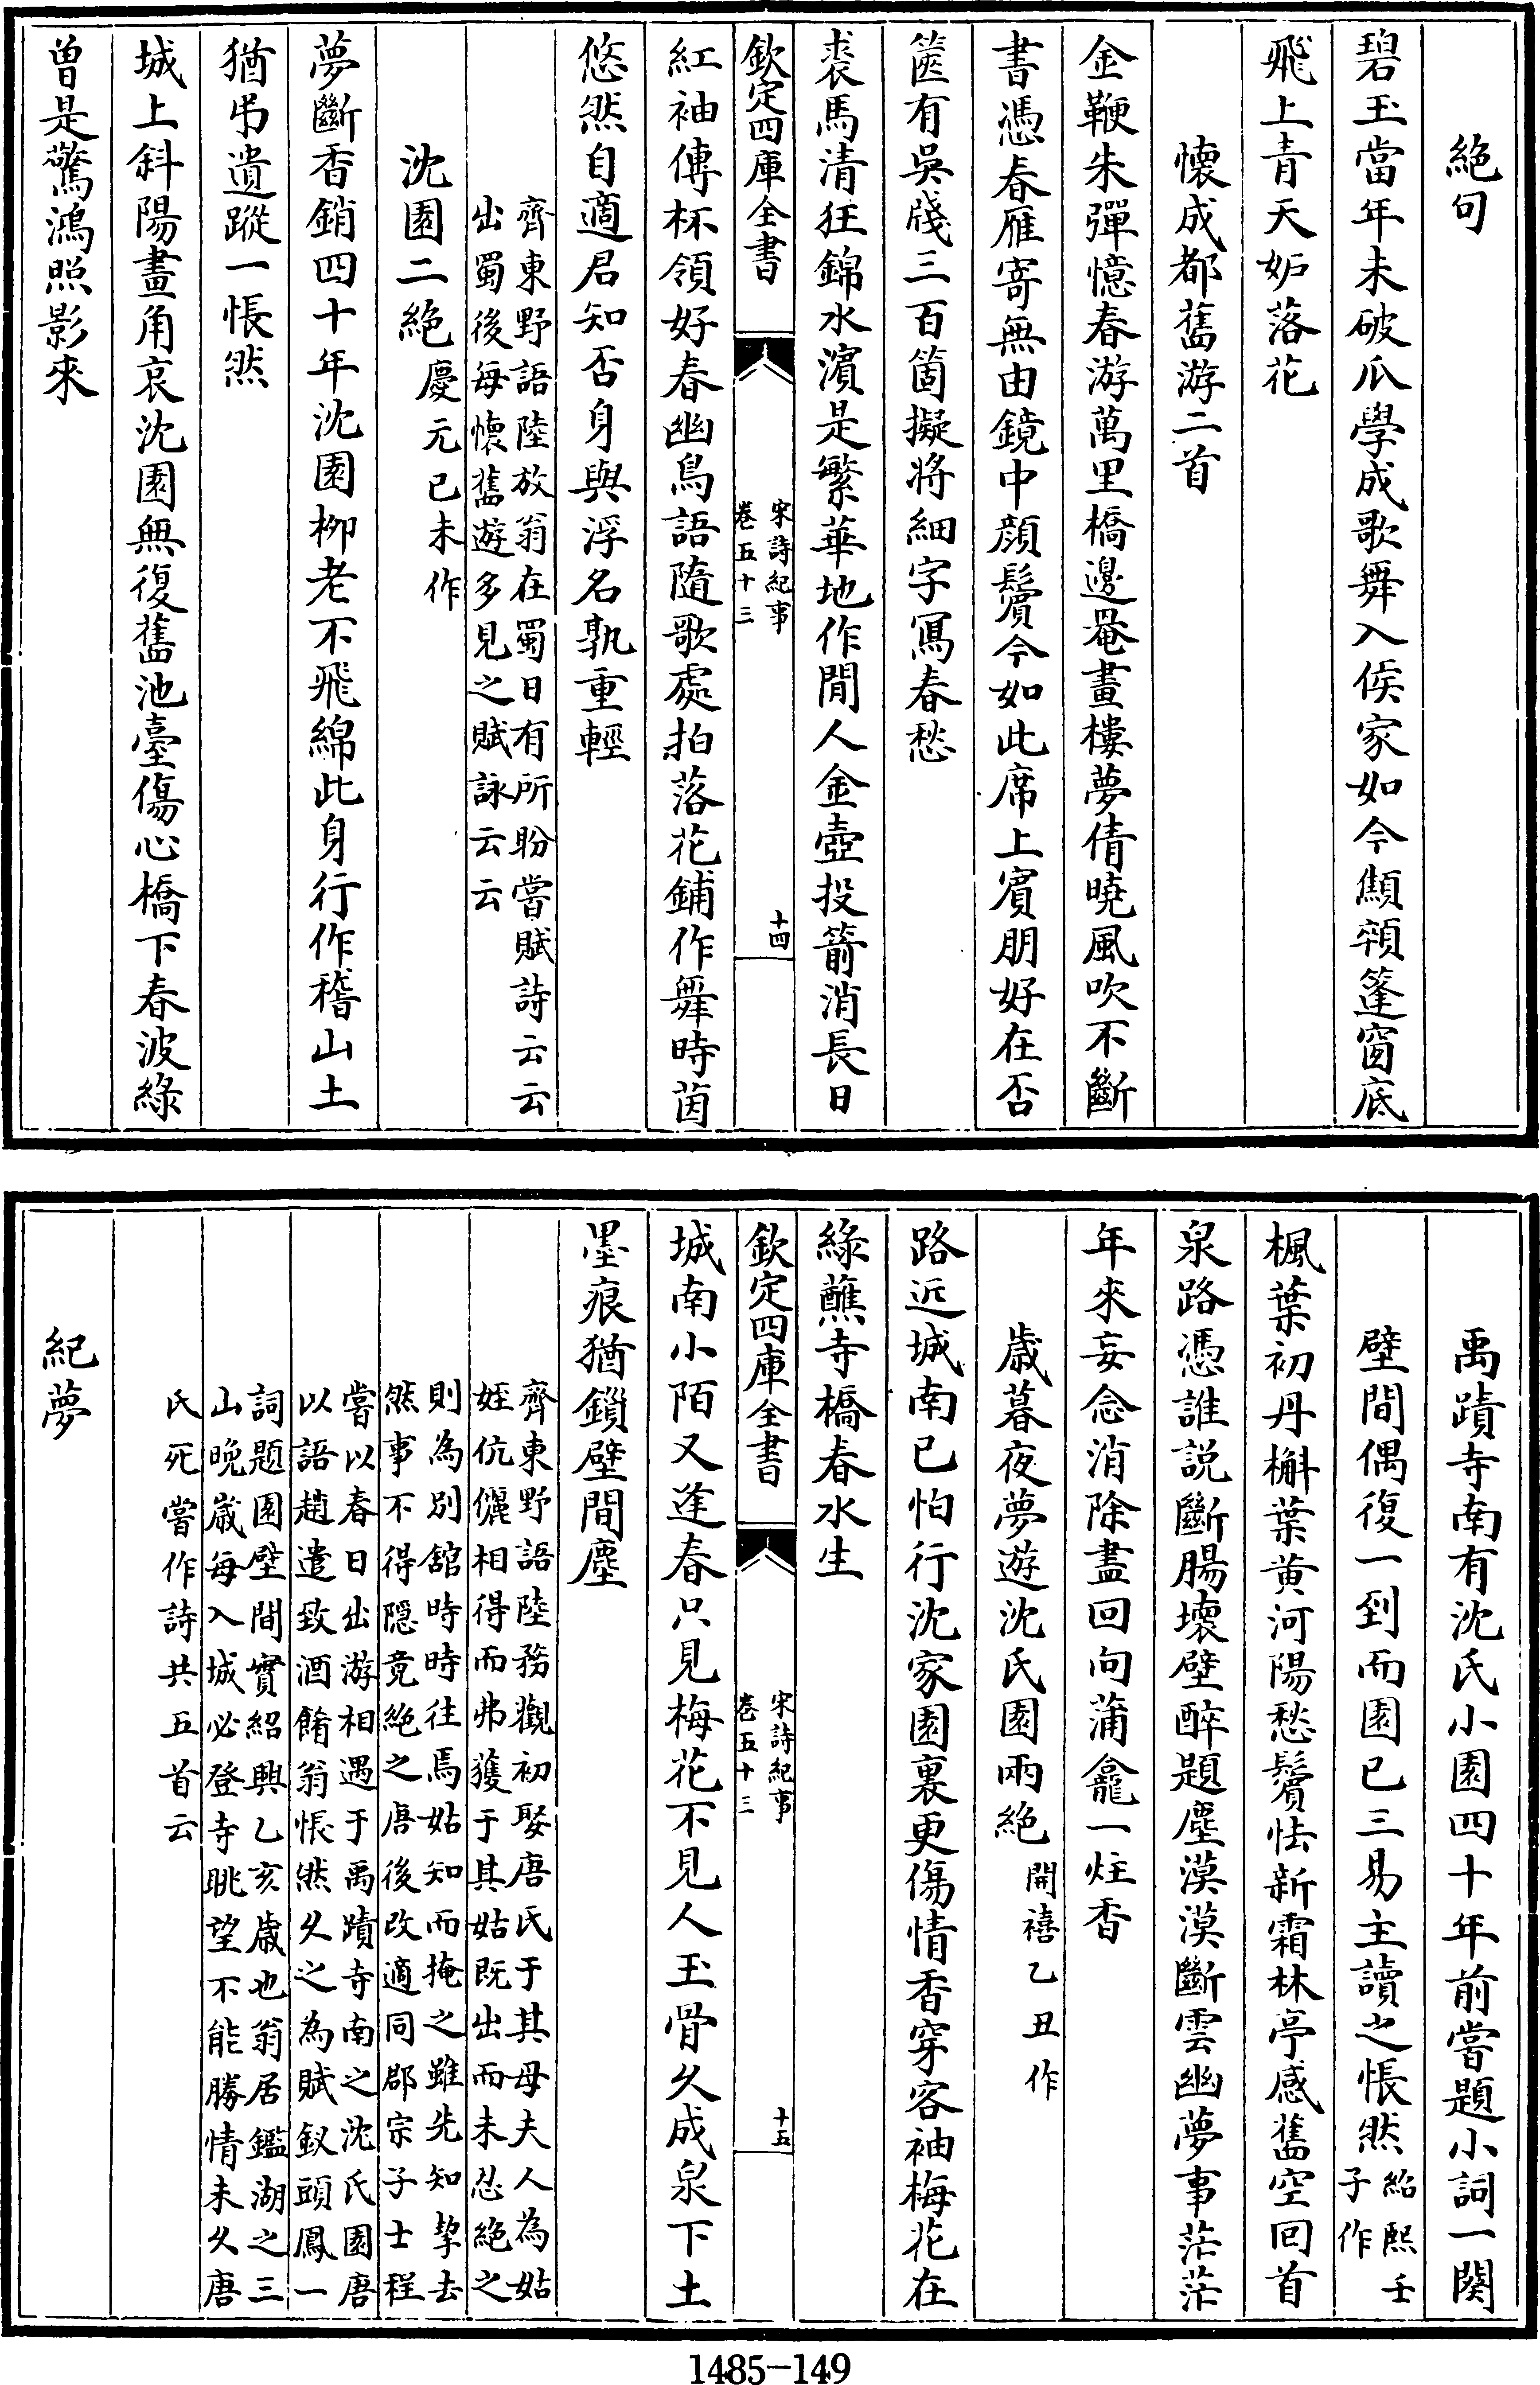 絶句
碧玉當年未破瓜學成歌舞入侯家如今顦顇篷窗底
飛上青天妒落花
懷成都舊游二首
金鞭朱彈憶春游萬里橋邊罨畫樓夢倩曉風吹不斷
書憑春雁寄無由鏡中顔鬢今如此席上賓朋好在否
篋有吳牋三百箇擬將細字寫春愁
裘馬清狂錦水濵是繁華地作閒人金壺投箭消長日
欽定四庫全書
宋詩紀事
卷五十三
十四
紅袖傳杯領好春幽鳥語隨歌處拍落花鋪作舞時茵
悠然自適君知否身與浮名孰重輕
齊東野語陸放翁在蜀日有所盼嘗賦詩云云
出蜀後每懷舊遊多見之賦詠云云
沈園二絶慶元已未作
夢斷香銷四十年沈園柳老不飛綿此身行作稽山土
猶弔遺蹤一悵然
城上斜陽畫角哀沈園無復舊池臺傷心橋下春波綠
曽是驚鴻照影來
禹蹟寺南有沈氏小園四十年前嘗題小詞一闋
壁間偶復一到而園已三易主讀之悵然紹熙壬
子作
楓葉初丹槲葉黄河陽愁鬢怯新霜林亭感舊空回首
泉路憑誰説斷腸壞壁醉題塵漠漠斷雲幽夢事茫茫
年來妄念消除盡回向蒲龕一炷香
歲暮夜夢遊沈氏園兩絶開禧乙丑作
路近城南已怕行沈家園裏更傷情香穿客袖梅花在
綠蘸寺橋春水生
欽定四庫全書
宋詩紀事
卷五十三
十五
城南小陌又逢春只見梅花不見人玉骨久成泉下土
墨痕猶鎖壁間塵
齊東野語陸務觀初娶唐氏于其母夫人為姑
姪伉儷相得而弗獲于其姑既出而未忍絶之
則為别舘時時往焉姑知而掩之雖先知挈去
然事不得隠竟絶之唐後改適同郡宗子士程
嘗以春日出游相遇于禹蹟寺南之沈氏園唐
以語趙遣致酒餚翁悵然久之為賦釵頭鳳一
詞題園壁間實紹興乙亥歲也翁居鑑湖之三
山晚歲每入城必登寺眺望不能勝情未久唐
氏死嘗作詩共五首云
紀夢
1485-149